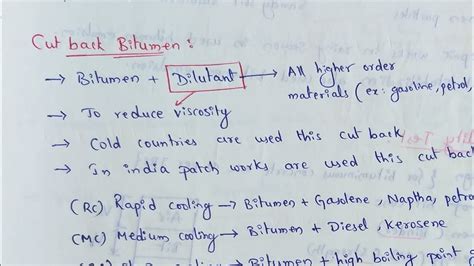 Cut back Bitumen :
→ Bitumen + Dilutant → All higher order
materials (ex: gasoline, petrol,
→ To reduce viscosity
→ Cold countries are used this cut back
→ In india patch works are used this cut back
(RC) Rapid cooling → Bitumen + Gasolene, Naptha, petro
(MC) Medium cooling → Bitumen + Diesel, Kerosene
Bitumen + high boiling point